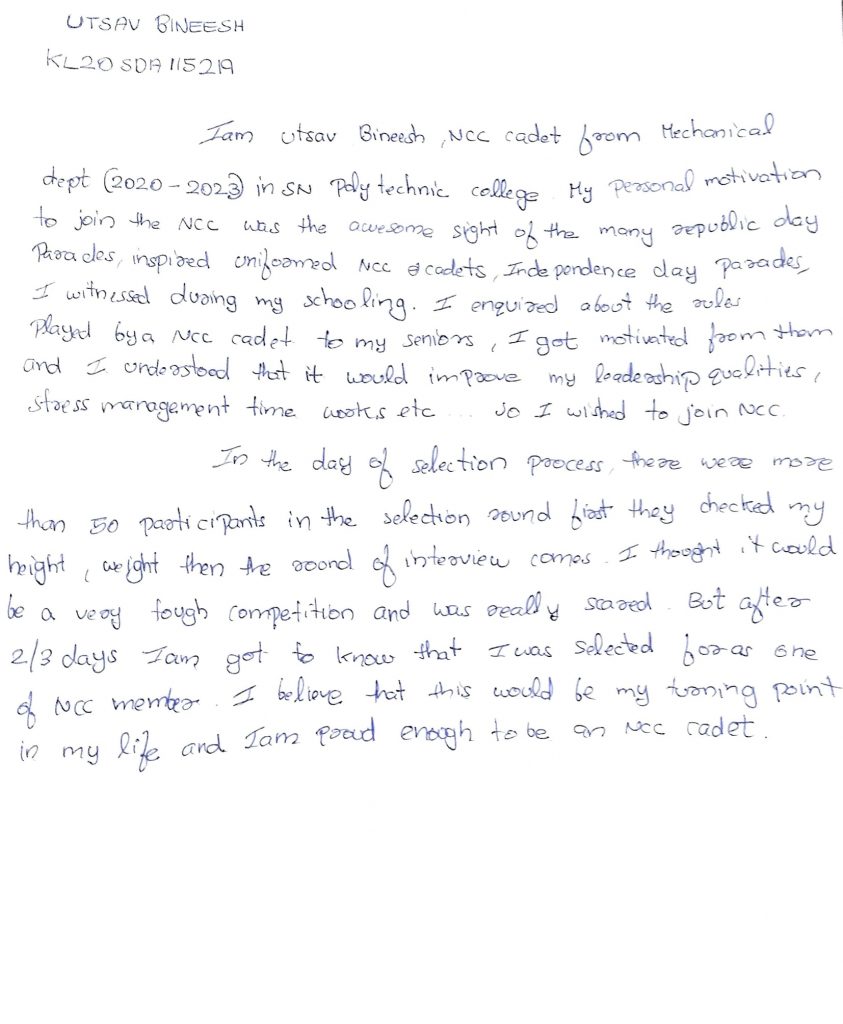 UTSAV BINEESH
KL20 SDA 115219
Iam utsav Bineesh, NCC cadet from Mechanical
dept (2020 - 2023) in SN Poly technic college. My personal motivation
to join the NCC was the awesome sight of the many republic day
Parades, inspired uniformed NCC cadets, Independence day parades,
I witnessed during my schooling. I enquired about the rules
Played by a NCC cadet to my seniors, I got motivated from them
and I understood that it would improve my leadership qualities,
stress management time works etc ... so I wished to join NCC.
In the day of selection process, there were more
than 50 participants in the selection round first they checked my
height, weight then the round of interview comes. I thought it would
be a very tough competition and was really scared. But after
2/3 days Iam got to know that I was selected for as one
of NCC member. I believe that this would be my turning point
in my life and Iam proud enough to be an NCC cadet.